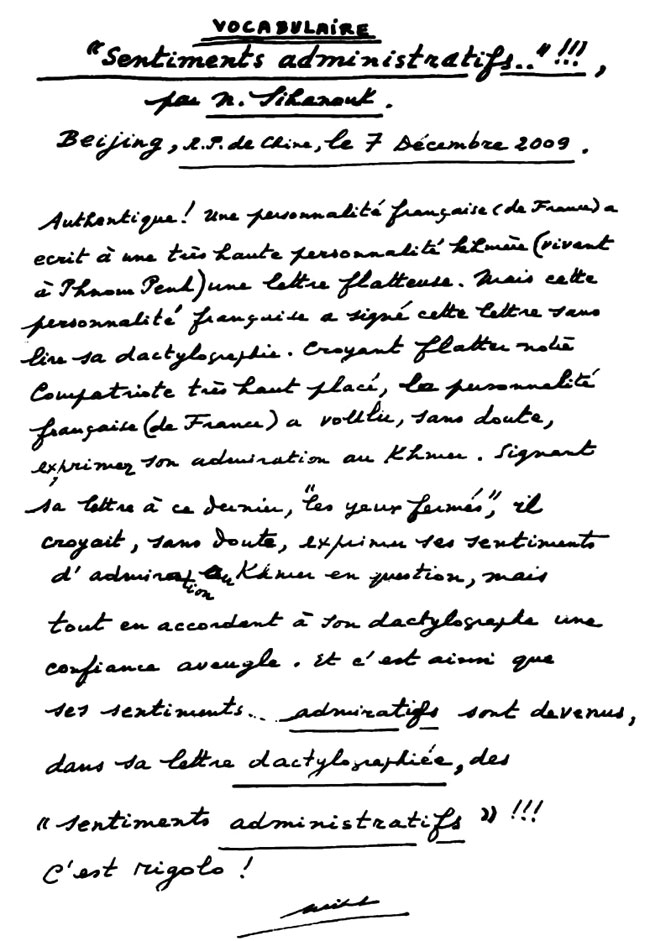 VOCABULAIRE
"Sentiments administratifs.." !!!,
par N. Sihanouk.
Beijing, R.P. de Chine, le 7 Décembre 2009.
Authentique! Une personnalité française (de France) a
ecrit à une très haute personnalité khmère (vivant
à Phnom Penh) une lettre flatteuse. Mais cette
personnalité française a signé cette lettre sans
lire sa dactylographie. Croyant flatter notre
Compatriote très haut placé, la personnalité
française (de France) a voulu, sans doute,
exprimer son admiration au Khmer. Signant
sa lettre à ce dernier, "les yeux fermés", il
croyait, sans doute, exprimer ses sentiments
d'admiration au Khmer en question, mais
tout en accordant à son dactylographe une
confiance aveugle. Et c'est ainsi que
ses sentiments... admiratifs sont devenus,
dans sa lettre dactylographiée, des
« sentiments administratifs » !!!
C'est rigolo !